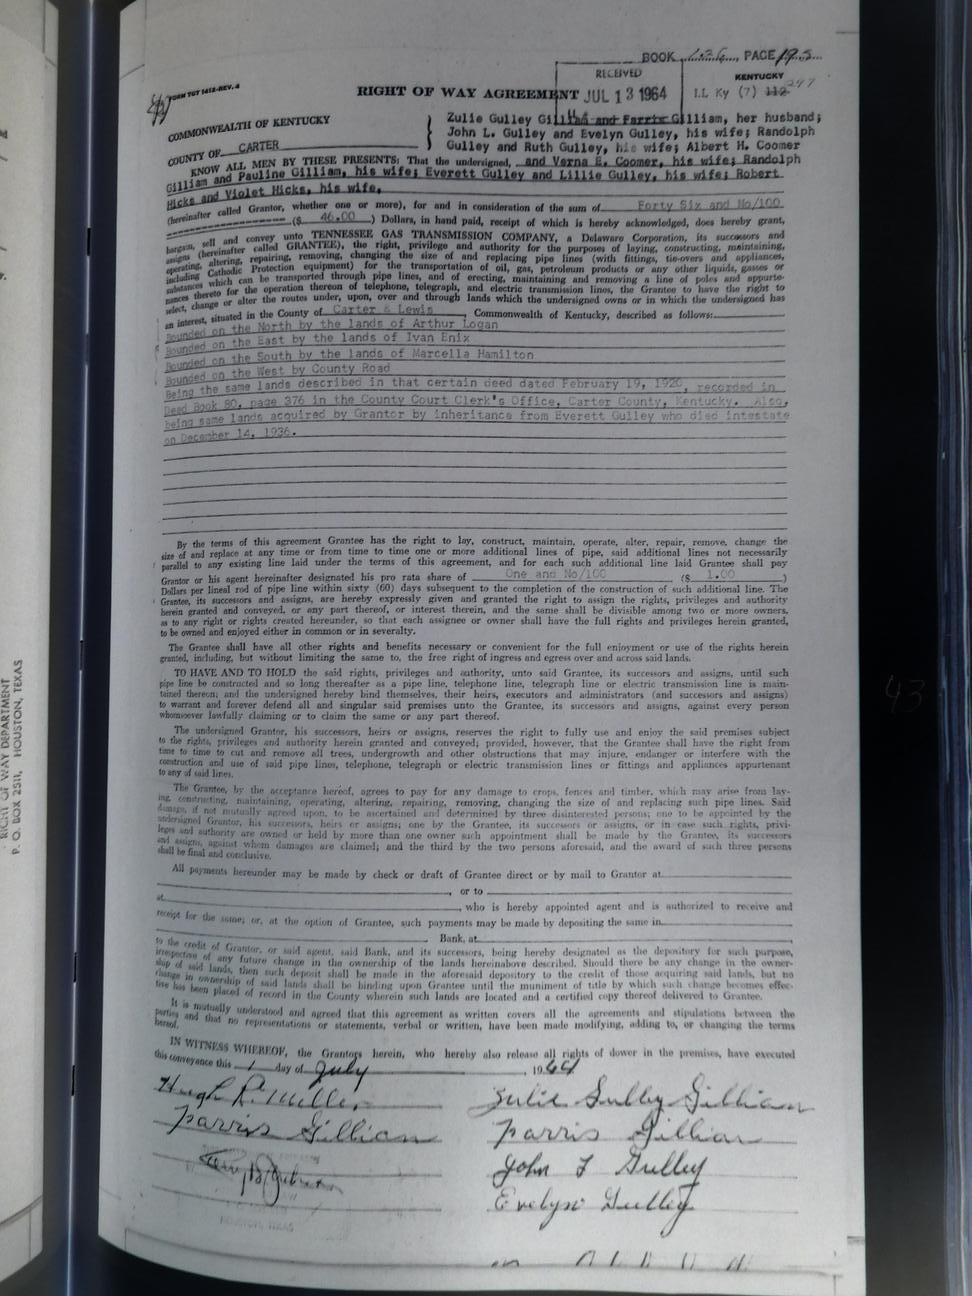 BOOK 136, PAGE 195
RECEIVED
JUL 13 1964
KENTUCKY
FORM TGT 1412-REV. 4
RIGHT OF WAY AGREEMENT
I.L Ky (7) 112 297
COMMONWEALTH OF KENTUCKY
COUNTY OF CARTER
Zulie Gulley Gilliam and Farris Gilliam, her husband;
John L. Gulley and Evelyn Gulley, his wife; Randolph
Gulley and Ruth Gulley, his wife; Albert H. Coomer
KNOW ALL MEN BY THESE PRESENTS: That the undersigned, and Verna E. Coomer, his wife; Randolph
Gilliam and Pauline Gilliam, his wife; Everett Gulley and Lillie Gulley, his wife; Robert
Hicks and Violet Hicks, his wife,
(hereinafter called Grantor, whether one or more), for and in consideration of the sum of Forty Six and No/100
($ 46.00 ) Dollars, in hand paid, receipt of which is hereby acknowledged, does hereby grant,
bargain, sell and convey unto TENNESSEE GAS TRANSMISSION COMPANY, a Delaware Corporation, its successors and
assigns (hereinafter called GRANTEE), the right, privilege and authority for the purposes of laying, constructing, maintaining,
operating, altering, repairing, removing, changing the size of and replacing pipe lines (with fittings, tie-overs and appliances,
including Cathodic Protection equipment) for the transportation of oil, gas, petroleum products or any other liquids, gasses or
substances which can be transported through pipe lines, and of erecting, maintaining and removing a line of poles and appurte-
nances thereto for the operation thereon of telephone, telegraph, and electric transmission lines, the Grantee to have the right to
select, change or alter the routes under, upon, over and through lands which the undersigned owns or in which the undersigned has
an interest, situated in the County of Carter & Lewis, Commonwealth of Kentucky, described as follows:
Bounded on the North by the lands of Arthur Logan
Bounded on the East by the lands of Ivan Enix
Bounded on the South by the lands of Marcella Hamilton
Bounded on the West by County Road
Being the same lands described in that certain deed dated February 19, 1920, recorded in
Deed Book 80, page 376 in the County Court Clerk's Office, Carter County, Kentucky. Also,
being same lands acquired by Grantor by inheritance from Everett Gulley who died intestate
on December 14, 1936.
By the terms of this agreement Grantee has the right to lay, construct, maintain, operate, alter, repair, remove, change the
size of and replace at any time or from time to time one or more additional lines of pipe, said additional lines not necessarily
parallel to any existing line laid under the terms of this agreement, and for each such additional line laid Grantee shall pay
Grantor or his agent hereinafter designated his pro rata share of One and No/100 ($ 1.00 )
Dollars per lineal rod of pipe line within sixty (60) days subsequent to the completion of the construction of such additional line. The
Grantee, its successors and assigns, are hereby expressly given and granted the right to assign the rights, privileges and authority
herein granted and conveyed, or any part thereof, or interest therein, and the same shall be divisible among two or more owners,
as to any right or rights created hereunder, so that each assignee or owner shall have the full rights and privileges herein granted,
to be owned and enjoyed either in common or in severalty.
The Grantee shall have all other rights and benefits necessary or convenient for the full enjoyment or use of the rights herein
granted, including, but without limiting the same to, the free right of ingress and egress over and across said lands.
TO HAVE AND TO HOLD the said rights, privileges and authority, unto said Grantee, its successors and assigns, until such
pipe line be constructed and so long thereafter as a pipe line, telephone line, telegraph line or electric transmission line is main-
tained thereon; and the undersigned hereby bind themselves, their heirs, executors and administrators (and successors and assigns)
to warrant and forever defend all and singular said premises unto the Grantee, its successors and assigns, against every person
whomsoever lawfully claiming or to claim the same or any part thereof.
The undersigned Grantor, his successors, heirs or assigns, reserves the right to fully use and enjoy the said premises subject
to the rights, privileges and authority herein granted and conveyed; provided, however, that the Grantee shall have the right from
time to time to cut and remove all trees, undergrowth and other obstructions that may injure, endanger or interfere with the
construction and use of said pipe lines, telephone, telegraph or electric transmission lines or fittings and appliances appurtenant
to any of said lines.
The Grantee, by the acceptance hereof, agrees to pay for any damage to crops, fences and timber, which may arise from lay-
ing, constructing, maintaining, operating, altering, repairing, removing, changing the size of and replacing such pipe lines. Said
damage, if not mutually agreed upon, to be ascertained and determined by three disinterested persons; one to be appointed by the
undersigned Grantor, his successors, heirs or assigns; one by the Grantee, its successors or assigns, or in case such rights, privi-
leges and authority are owned or held by more than one owner such appointment shall be made by the Grantee, its successors
and assigns, against whom damages are claimed; and the third by the two persons aforesaid, and the award of such three persons
shall be final and conclusive.
All payments hereunder may be made by check or draft of Grantee direct or by mail to Grantor at
at , or to
, who is hereby appointed agent and is authorized to receive and
receipt for the same; or, at the option of Grantee, such payments may be made by depositing the same in
Bank, at
to the credit of Grantor, or said agent, said Bank, and its successors, being hereby designated as the depository for such purpose,
irrespective of any future change in the ownership of the lands hereinabove described. Should there be any change in the owner-
ship of said lands, then such deposit shall be made in the aforesaid depository to the credit of those acquiring said lands, but no
change in ownership of said lands shall be binding upon Grantee until the muniment of title by which such change becomes effec-
tive has been placed of record in the County wherein such lands are located and a certified copy thereof delivered to Grantee.
It is mutually understood and agreed that this agreement as written covers all the agreements and stipulations between the
parties and that no representations or statements, verbal or written, have been made modifying, adding to, or changing the terms
hereof.
IN WITNESS WHEREOF, the Grantors herein, who hereby also release all rights of dower in the premises, have executed
this conveyance this 1 day of July, 1964
Hugh R. Miller
Zulie Gulley Gilliam
Farris Gilliam
Farris Gilliam
John L Gulley
Evelyn Gulley
HOUSTON, TEXAS
RIGHT OF WAY DEPARTMENT
P. O. BOX 2511, HOUSTON, TEXAS
43